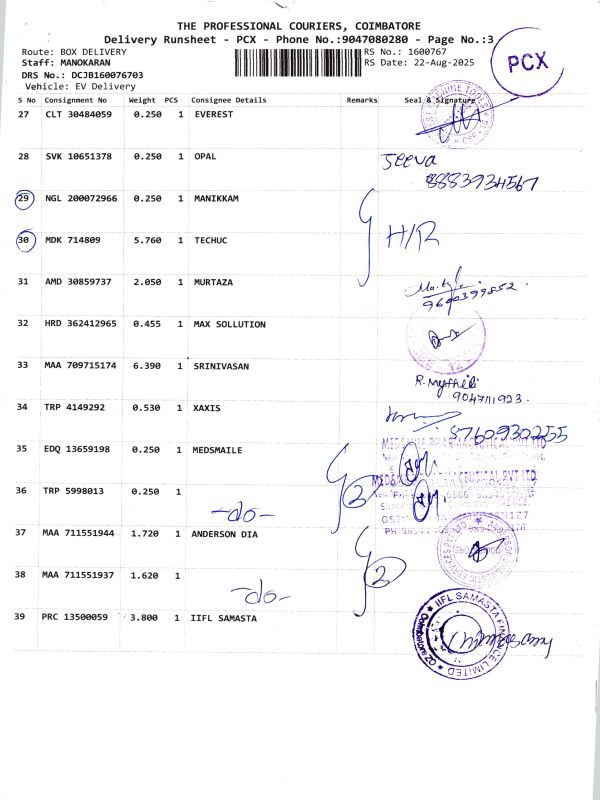 THE PROFESSIONAL COURIERS, COIMBATORE
Delivery Runsheet - PCX - Phone No.:9047080280 - Page No.:3
PCX
Route: BOX DELIVERY
RS No.: 1600767
Staff: MANOKARAN
RS Date: 22-Aug-2025
DRS No.: DCJB160076703
Vehicle: EV Delivery
S No Consignment No Weight PCS Consignee Details Remarks Seal & Signature
27 CLT 30484059 0.250 1 EVEREST
28 SVK 10651378 0.250 1 OPAL Jeeva
8883934567
29 NGL 200072966 0.250 1 MANIKKAM
30 MDK 714809 5.760 1 TECHUC H/R
31 AMD 30859737 2.050 1 MURTAZA
9600399852
32 HRD 362412965 0.455 1 MAX SOLLUTION
33 MAA 709715174 6.390 1 SRINIVASAN
R. Mythili
9047111923
34 TRP 4149292 0.530 1 XAXIS
8760930255
35 EDQ 13659198 0.250 1 MEDSMAILE
36 TRP 5998013 0.250 1
-do- 2
37 MAA 711551944 1.720 1 ANDERSON DIA
38 MAA 711551937 1.620 1
-do- 2
39 PRC 13500059 3.800 1 IIFL SAMASTA
IIFL SAMASTA FINANCE LIMITED